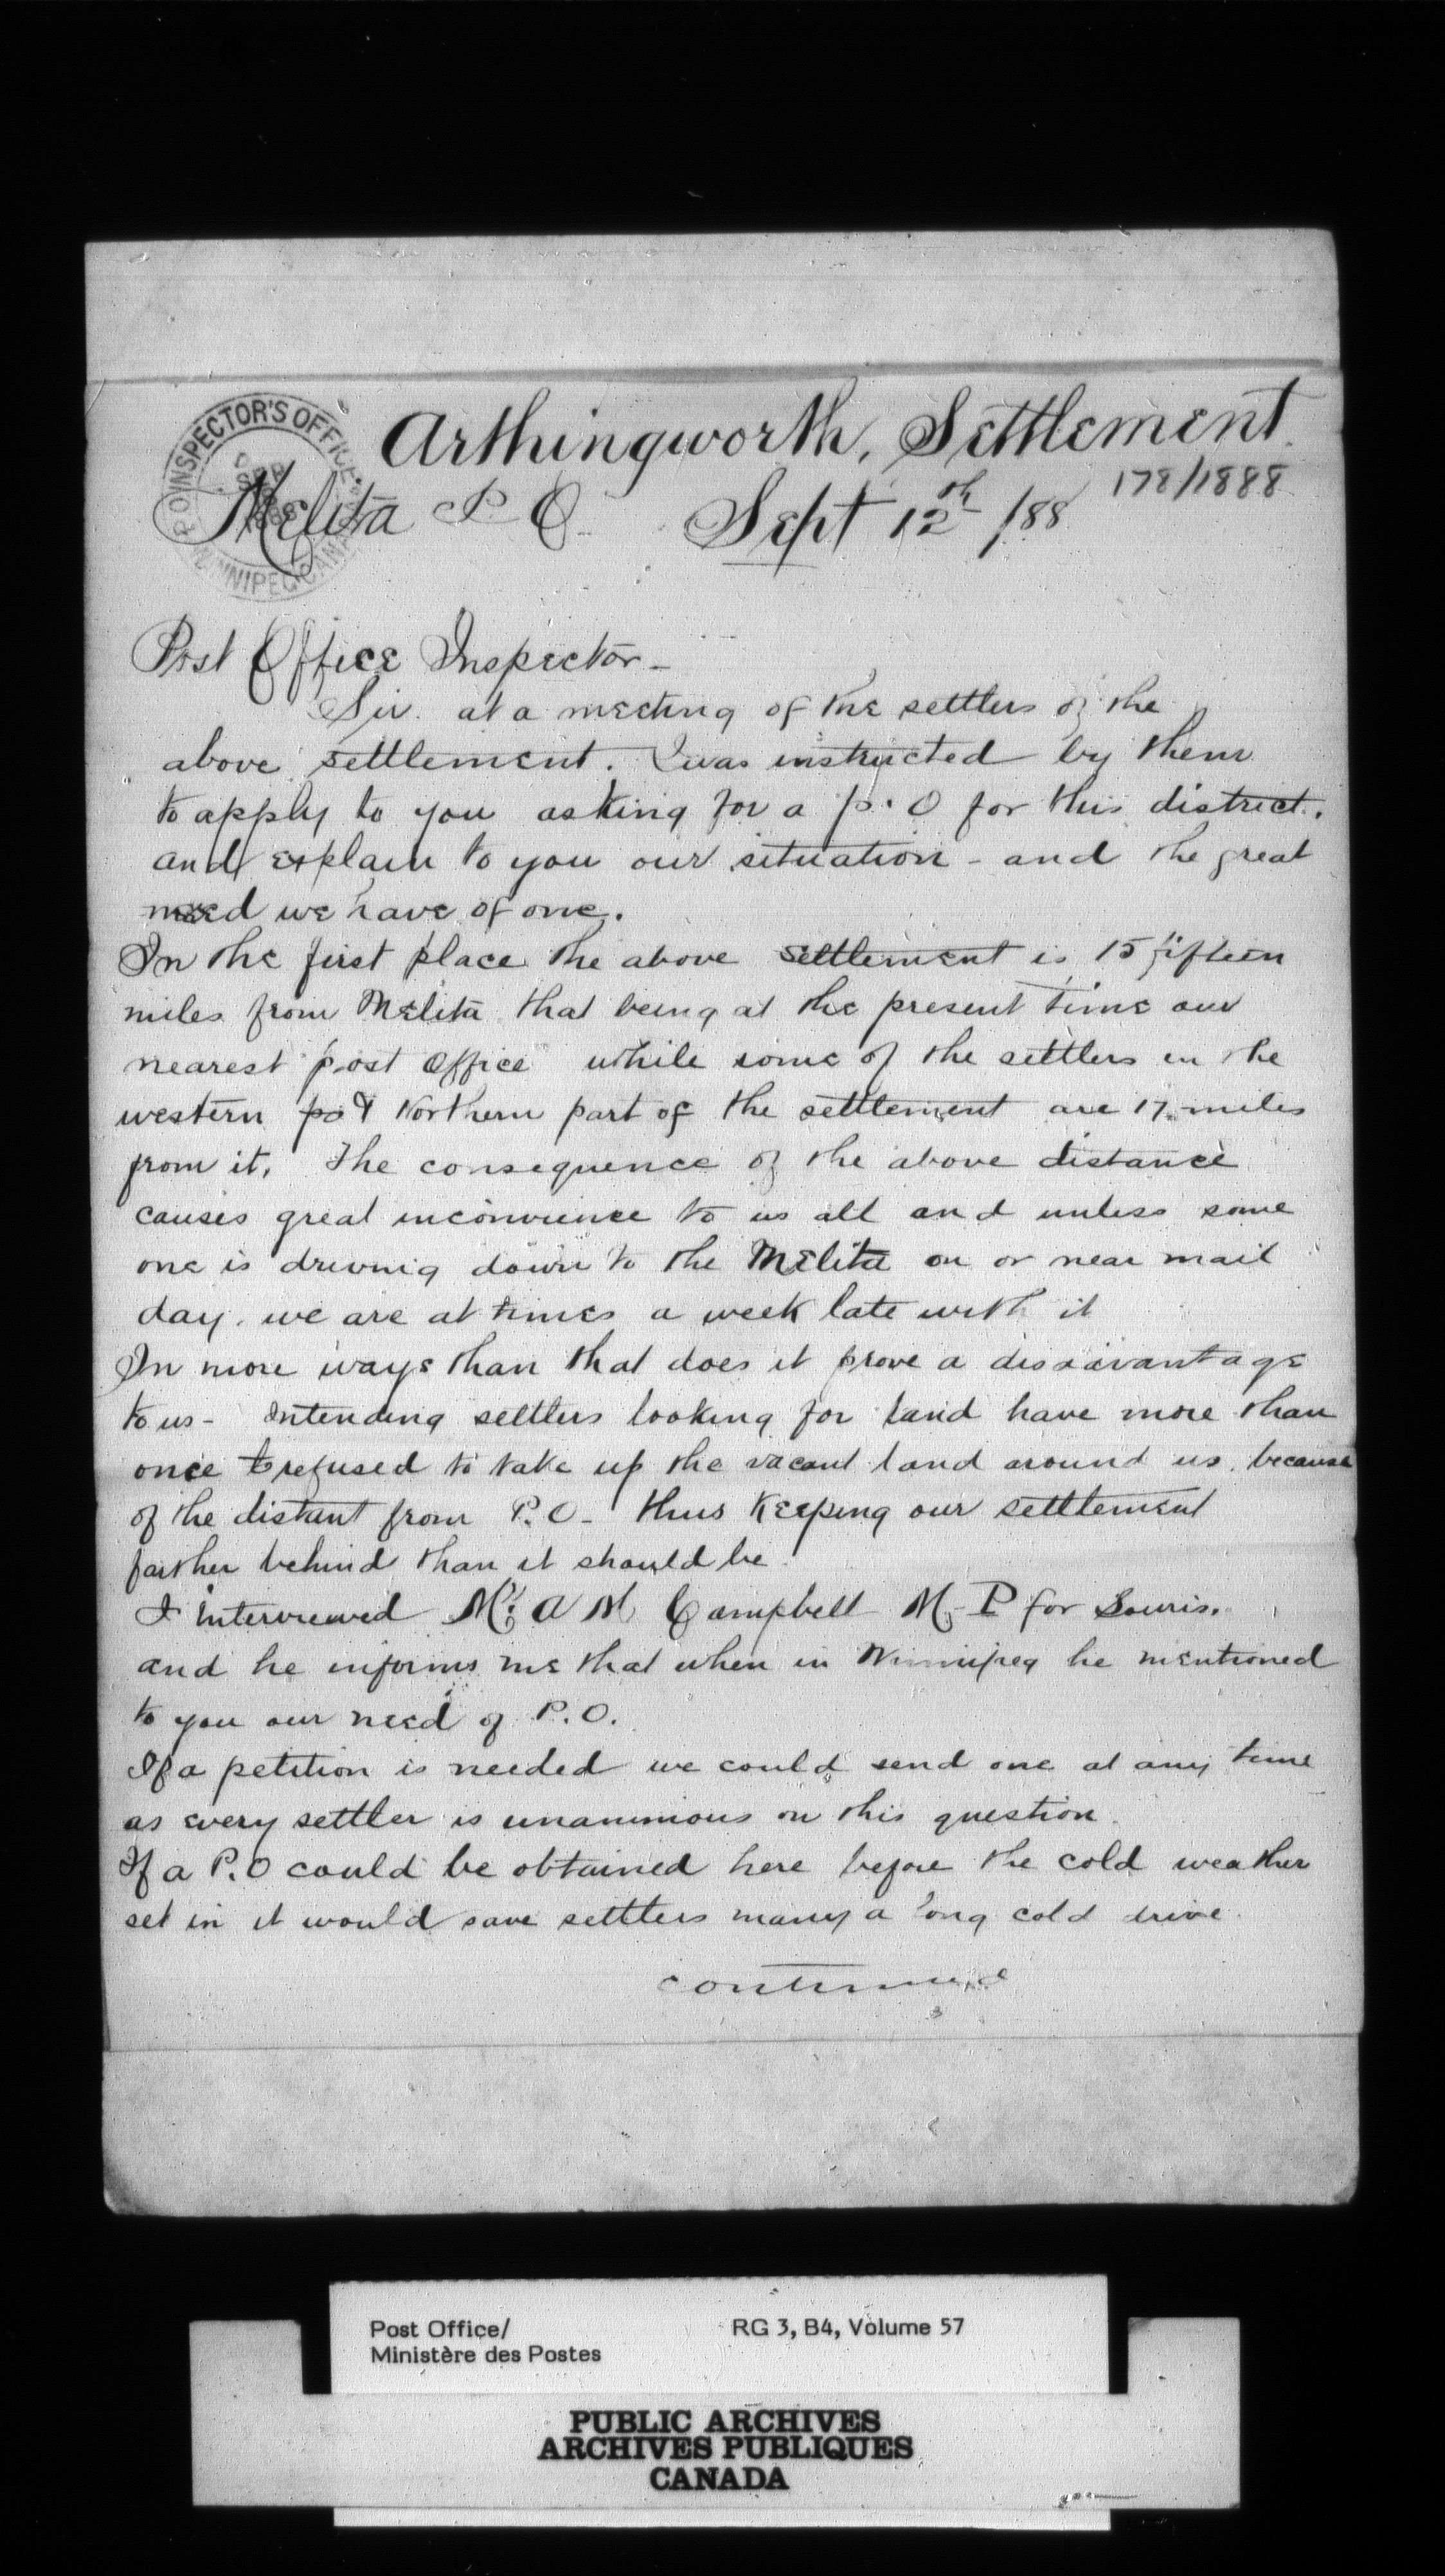 Arthingworth, Settlement.
178/1888
P.O INSPECTOR'S OFFICE.
SEP
1888
WINNIPEG, CANADA
Melita P O Sept 12th /88
Post Office Inspector -
Sir. at a meeting of the settlers of the
above settlement. I was instructed by them
to apply to you asking for a p. O for this district.
and explain to you our situation - and the great
need we have of one.
In the first place the above settlement is 15 fifteen
miles from Melita that being at the present time our
nearest post office while some of the settlers in the
western po & Northern part of the settlement are 17 miles
from it, The consequence of the above distance
causes great inconvience to us all and unless some
one is driving down to the Melita on or near mail
day. we are at times a week late with it
In more ways than that does it prove a disadavantage
to us - Intending settlers looking for land have more than
once t refused to take up the vacant land around us. because
of the distant from P.O - thus keeping our settlement
farther behind than it should be
I interviewed Mr. A M Campbell M-P for Souris.
and he informs me that when in Winnipeg he mentioned
to you our need of P.O.
If a petition is needed we could send one at any time
as every settler is unanimous on this question.
If a P.O could be obtained here before the cold weather
set in it would save settlers many a long cold drive.
continued
Post Office/ RG 3, B4, Volume 57
Ministère des Postes
PUBLIC ARCHIVES
ARCHIVES PUBLIQUES
CANADA